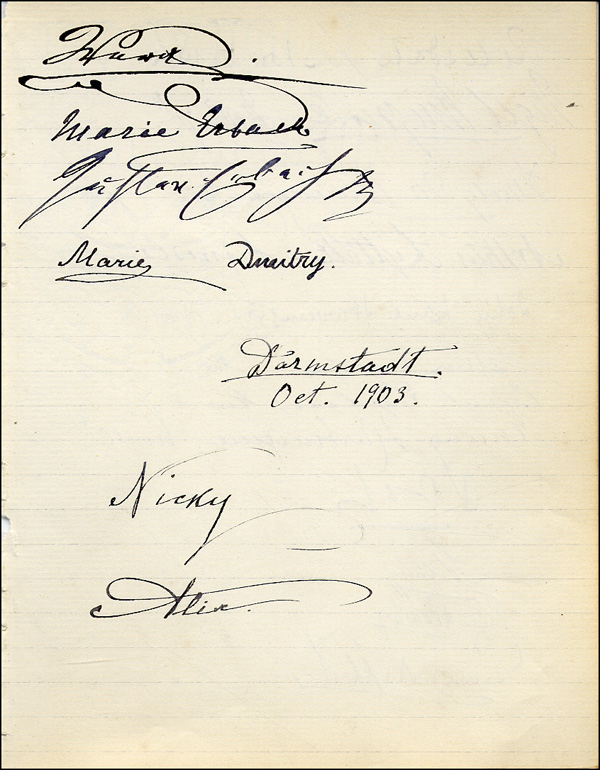 Marie Erbach
Gustav Erbach
Marie Dmitry.
Darmstadt.
Oct. 1903.
Nicky
Alix.